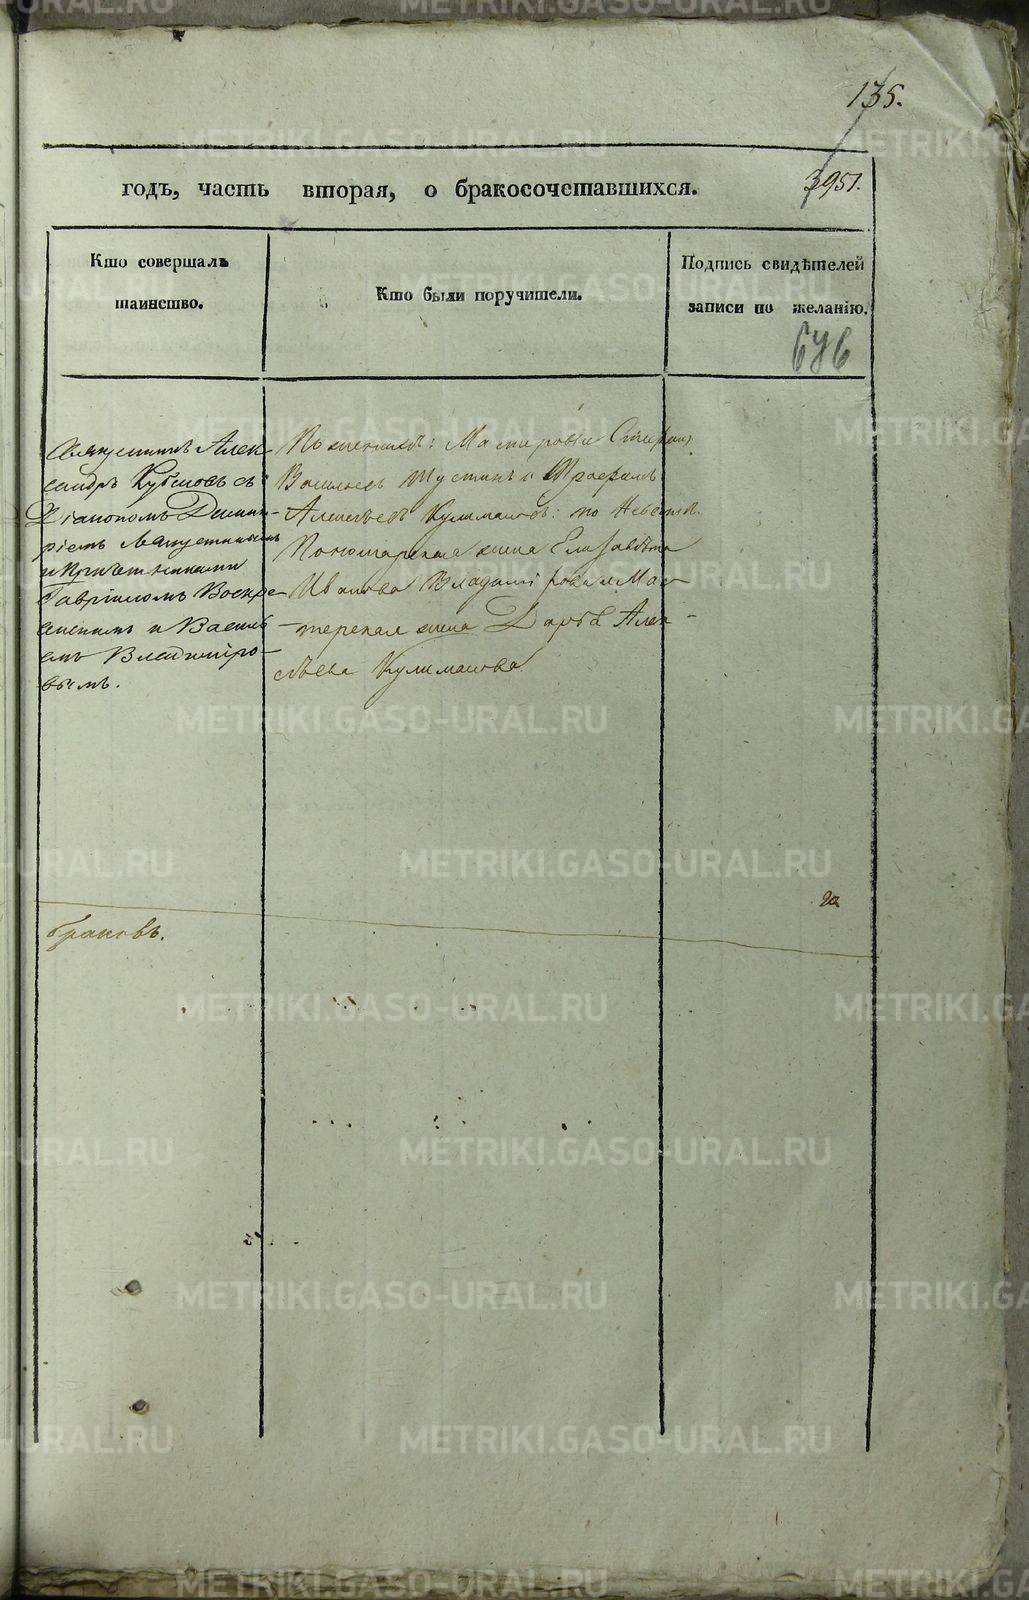 135.
3951.
годъ, часть вторая, о бракосочетавшихся.
Кто совершалъ
таинство.
Кто были поручители.
Подпись свидѣтелей
записи по желанію.
646
Священникъ Алек-
сандръ Кубасовъ съ
Діакономъ Димит-
ріемъ
и Причетниками
Гавріиломъ Воскре-
сенскимъ и Василь-
емъ Владиміро-
вымъ.
По женихѣ: Мастеровые Стефанъ
Васильевъ Шустинъ и Трофимъ
Алексѣевъ Кулмасовъ: по Невѣстѣ.
Пономарская жена Елизавета
Иванова Владимірова и Мас-
терская жена Дарья Алек-
сѣева Кулмасова
браковъ.
METRIKI.GASO-URAL.RU